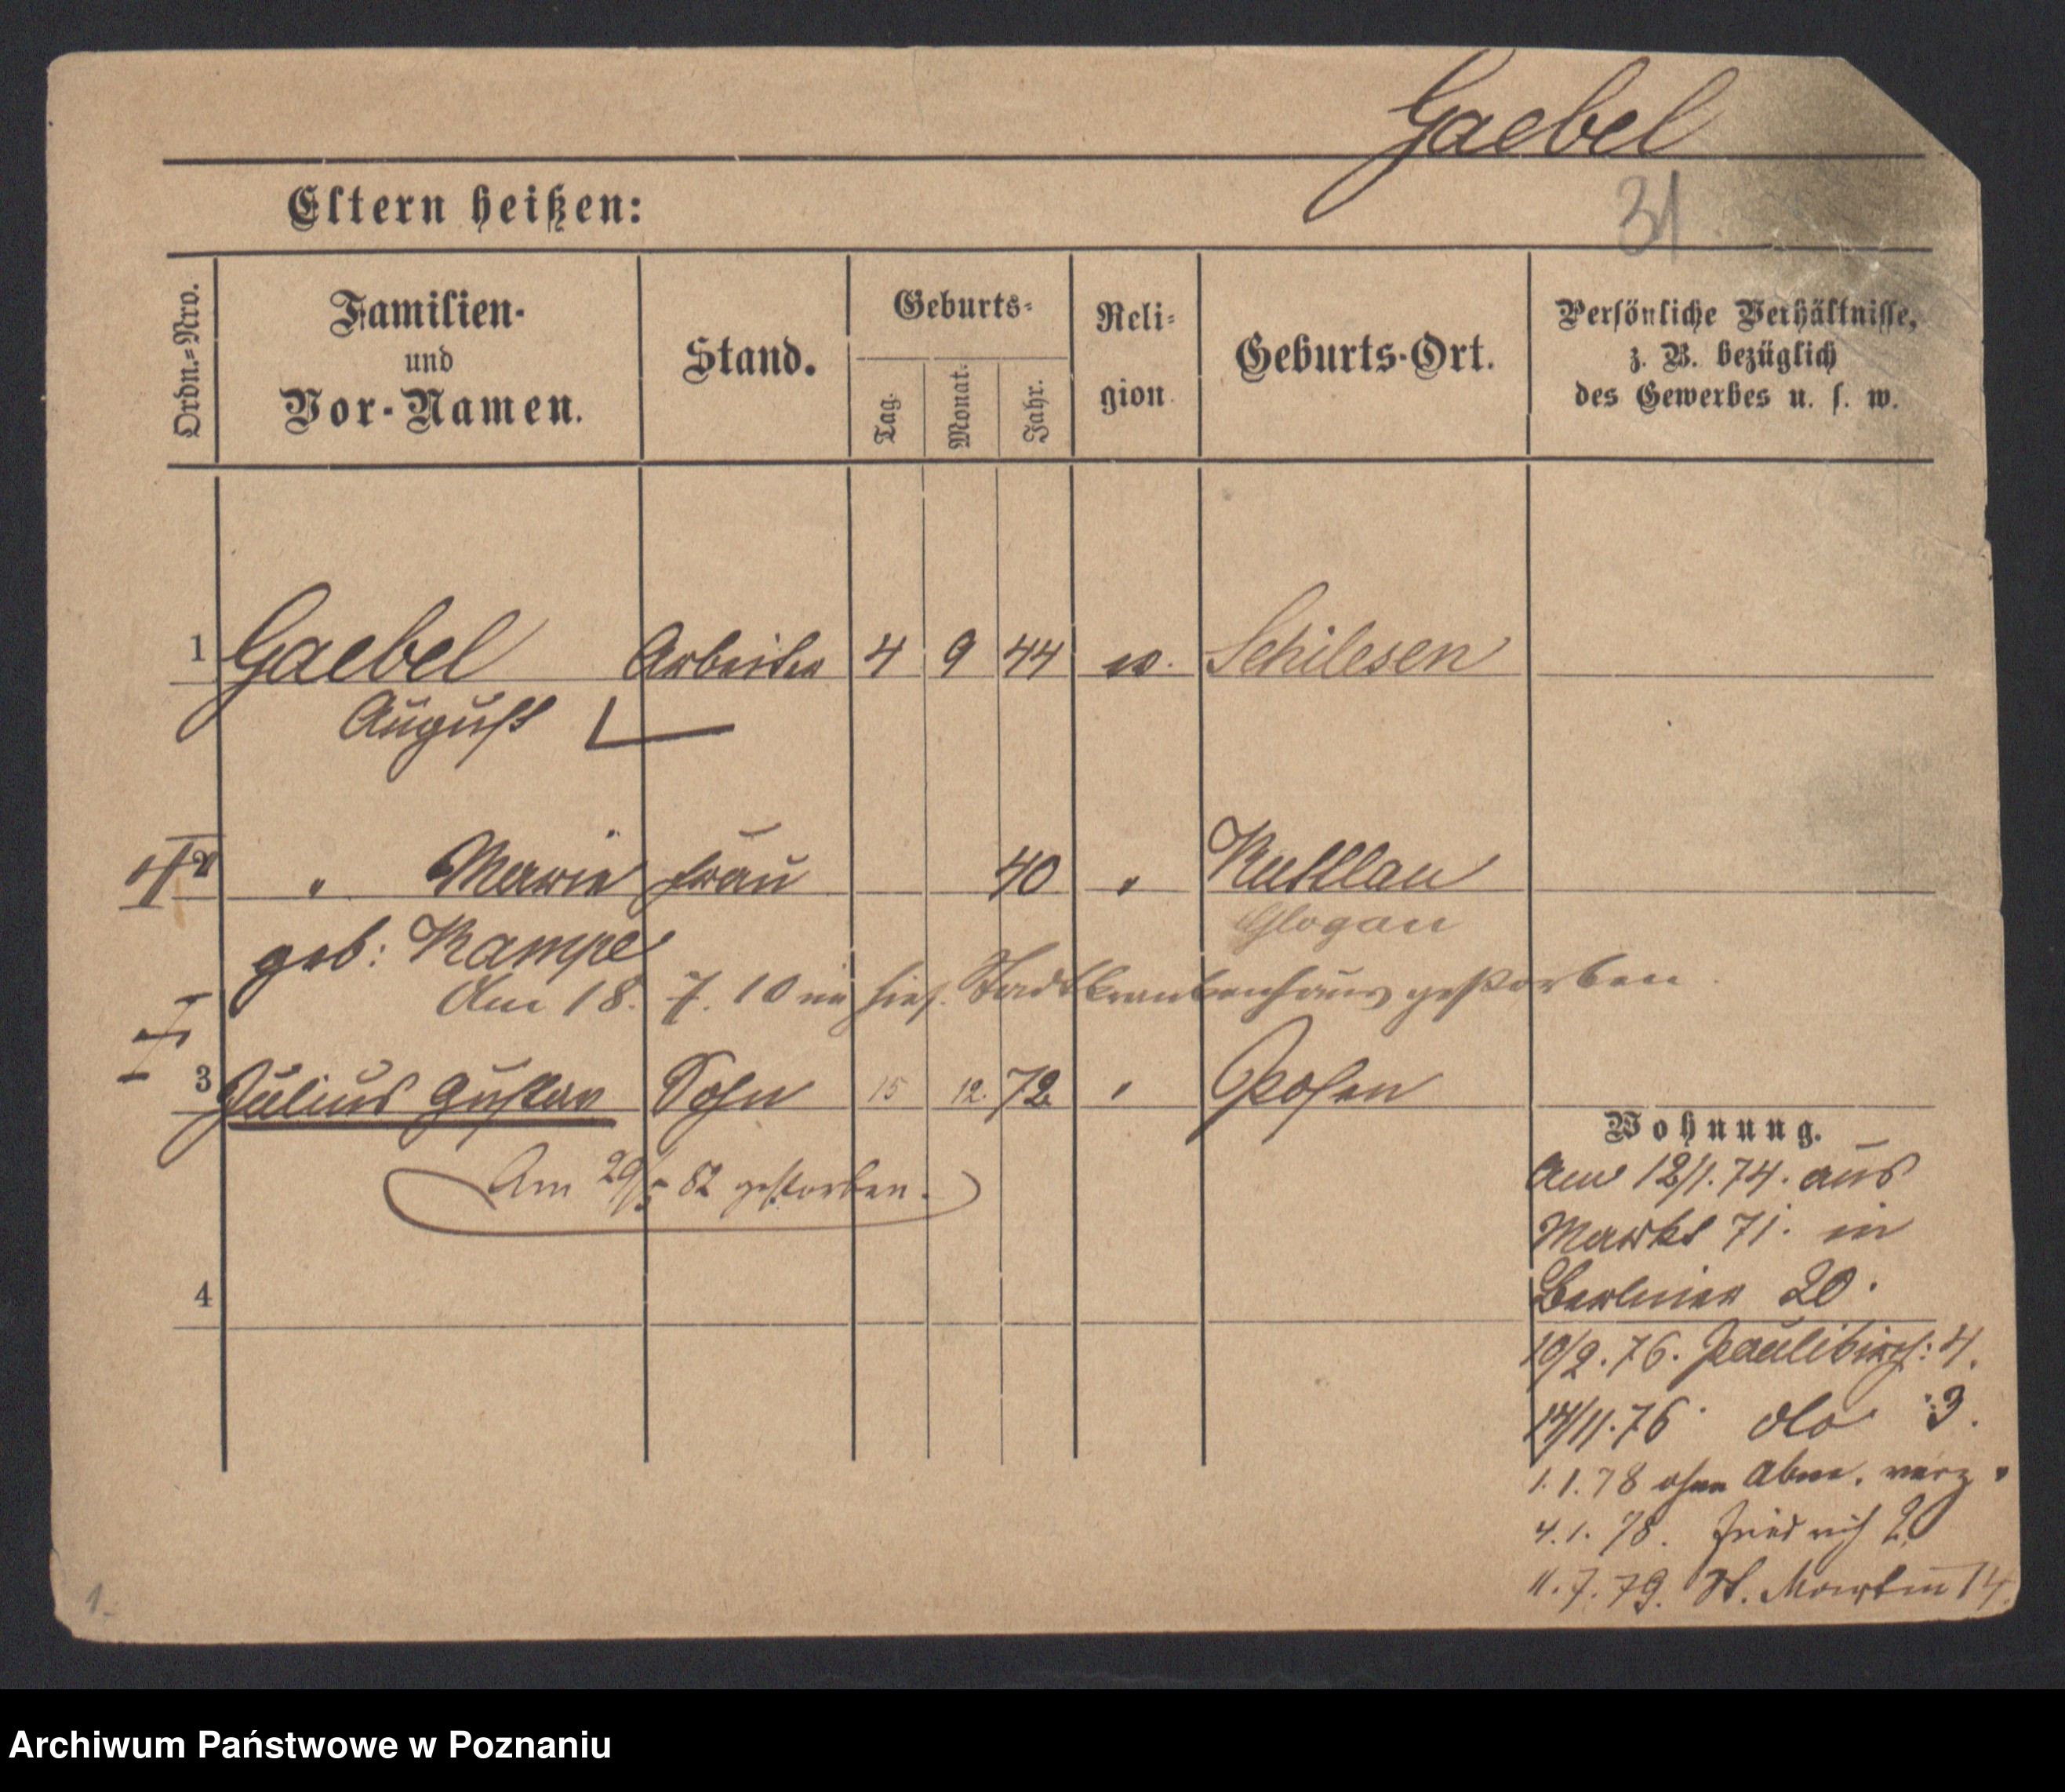 Gaebel
31
Eltern heißen:
Ordn.=Nro.
Familien-
und
Vor-Namen.
Stand.
Geburts-
Tag.
Monat.
Jahr.
Reli-
gion
Geburts-Ort.
Persönliche Verhältnisse,
z. B. bezüglich
des Gewerbes u. s. w.
1 Gaebel Arbeiter 4 9 44 Schilesen
August
2 " Marie Frau 40 " Kuttlau
Glogau
geb: Kampe
Am 18. 7. 10 im hies. Stadtkrankenhaus gestorben.
3 Julius Gustav Sohn 15 12. 72 " Posen
Am 29/5 82 gestorben.
4
Wohnung.
Am 12/1. 74. aus
Markt 71. in
Berliner 20.
10/2. 76. Paulikirch: 4.
14/11. 76 do 3.
1. 1. 78 ohne Abm. verz.
4. 1. 78. Friedrich
11. 7. 79. St. Martin 74.
1.
Archiwum Państwowe w Poznaniu